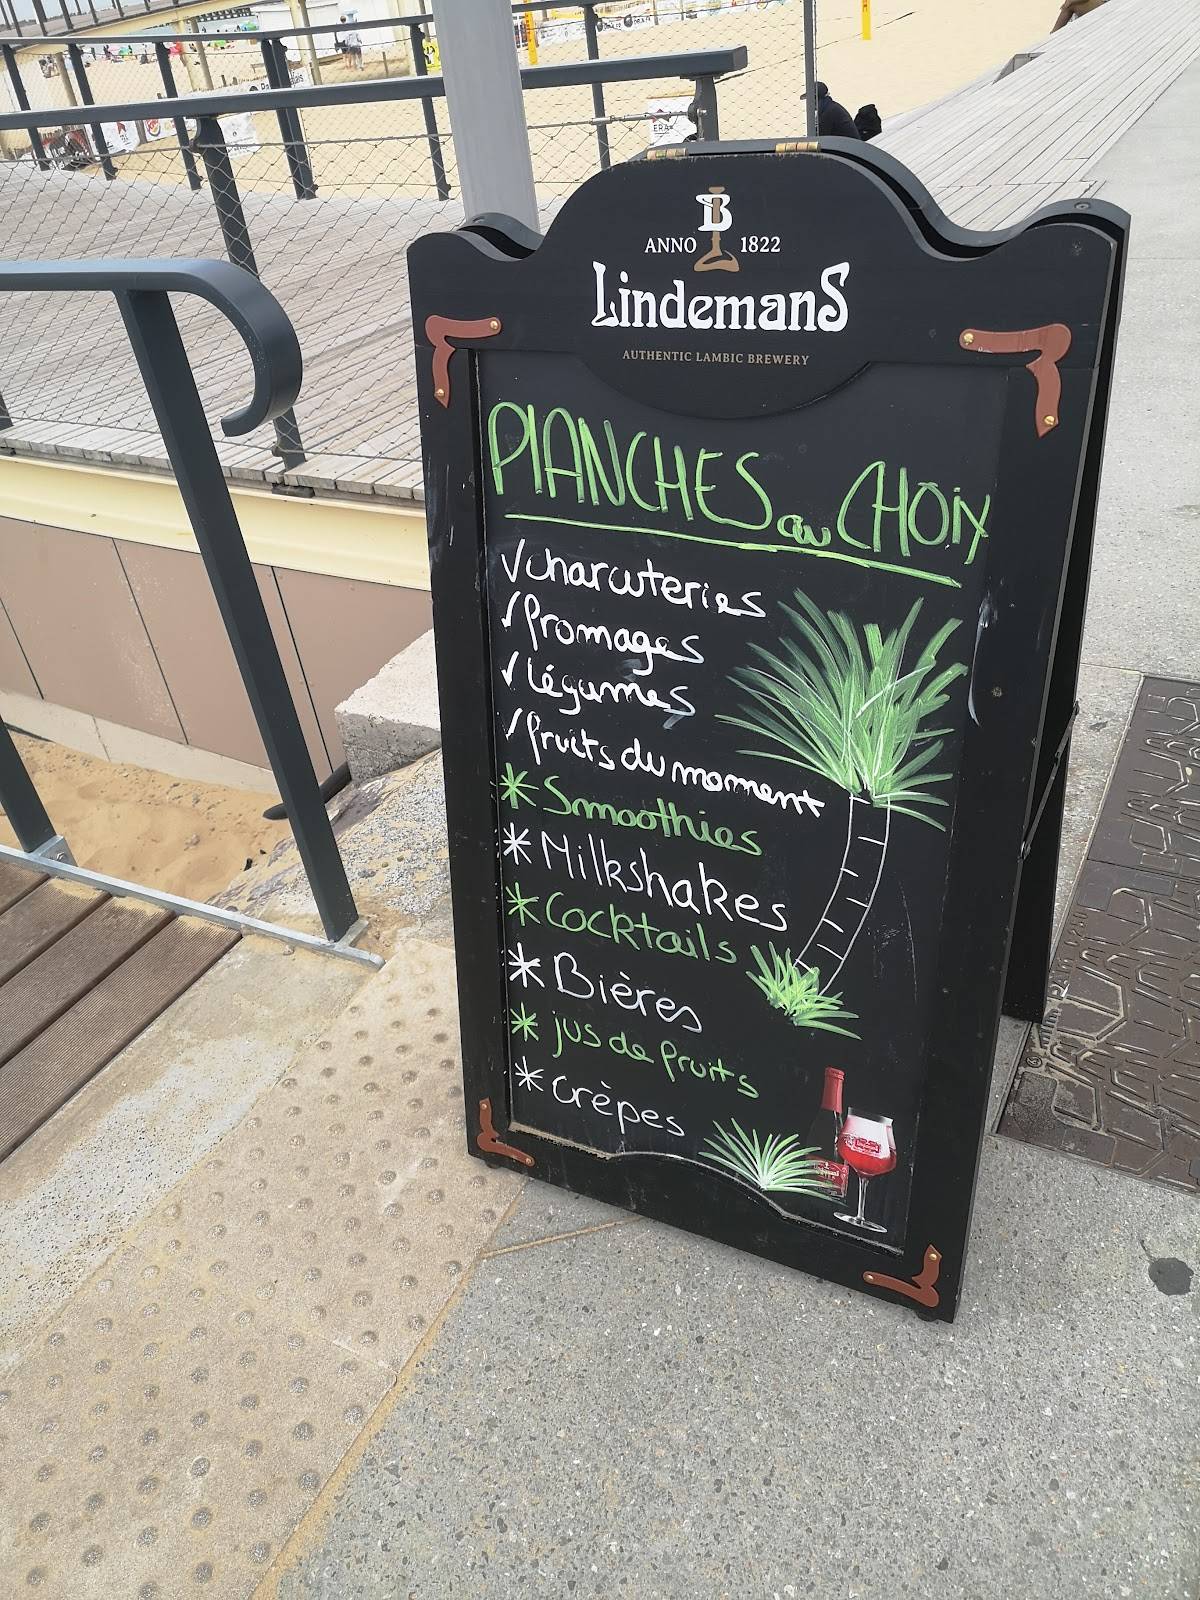 B
ANNO 1822
LindemanS
AUTHENTIC LAMBIC BREWERY
PLANCHES au CHOIX
✓ charcuteries
✓ fromages
✓ légumes
✓ fruits du moment
* Smoothies
* Milkshakes
* Cocktails
* Bières
* jus de fruits
* crèpes
ERA